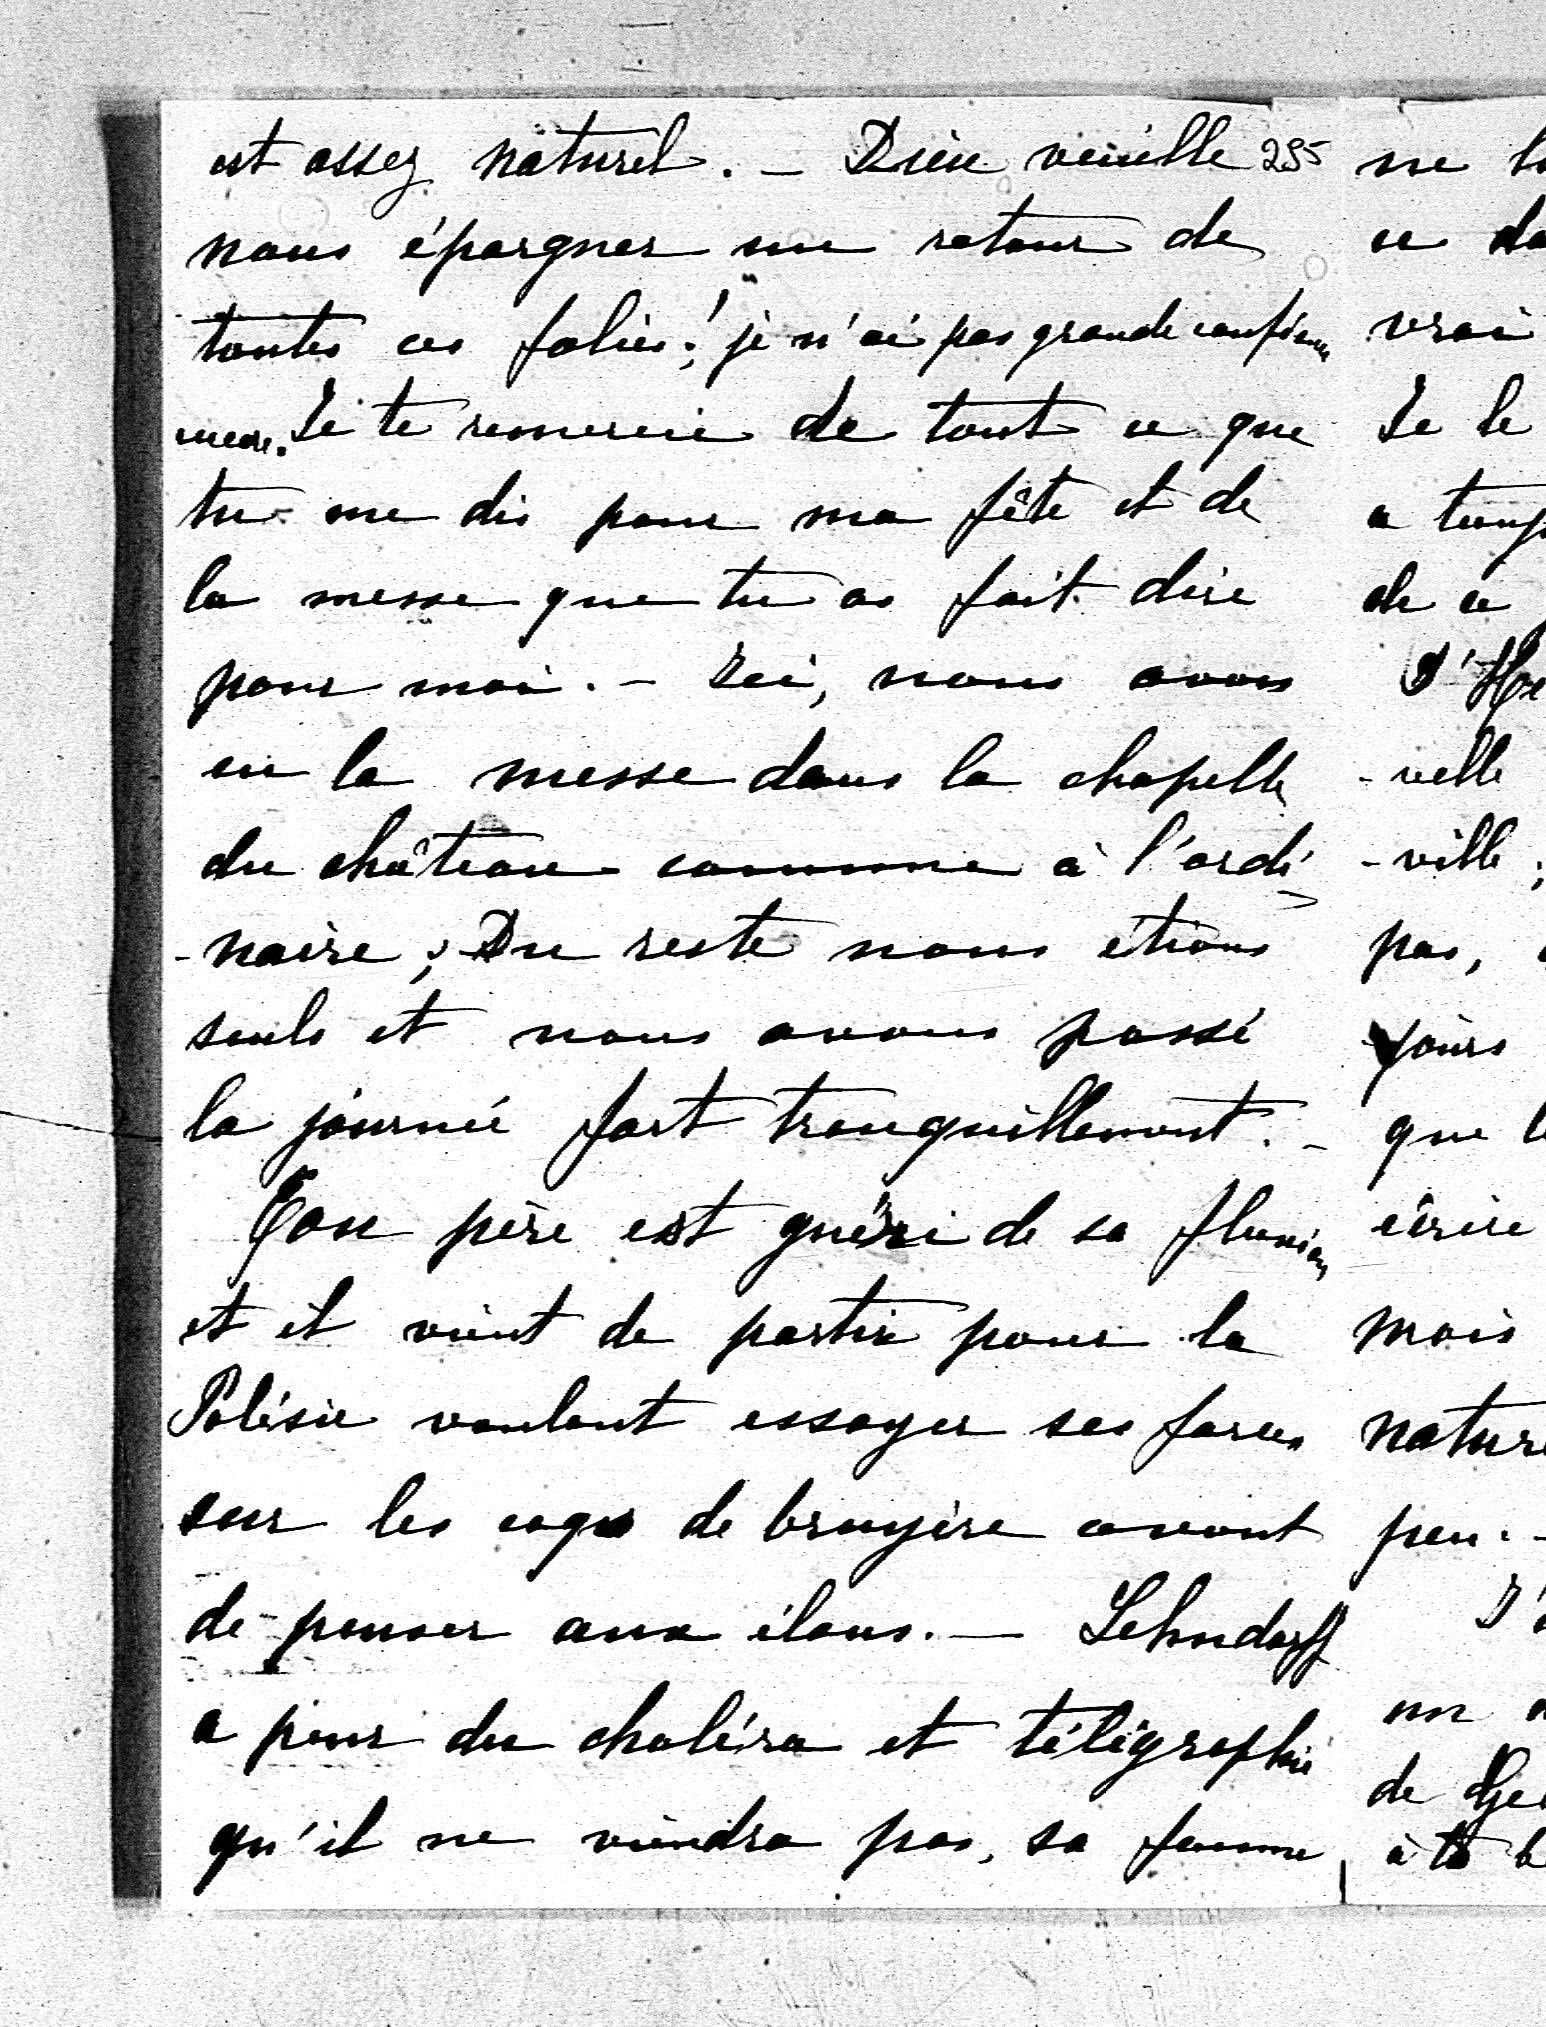 est assez naturel. — Dieu veuille 295
nous épargner un retour de
toutes ces folies! je n'ai pas grande confiance
Je te remercie de tout ce que
tu me dis pour ma fête et de
la messe que tu as fait dire
pour moi. — Ici, nous avons
eu la messe dans la chapelle
du château comme à l'ordi
-naire; Du reste nous étions
seuls et nous avons passé
la journée fort tranquillement. —
Ton père est guéri de sa fluxion
et il vient de partir pour la
Polésie voulant essayer ses forces
sur les coqs de bruyère avant
de penser aux élans. — Lehndorff
a peur du choléra et télégraphie
qu'il ne viendra pas, sa femme
ne
ce
vrai
Je le
a
de ce
-velle
-ville;
pas,
jours
que
écrire
mois
peu. -
un
de
à ta